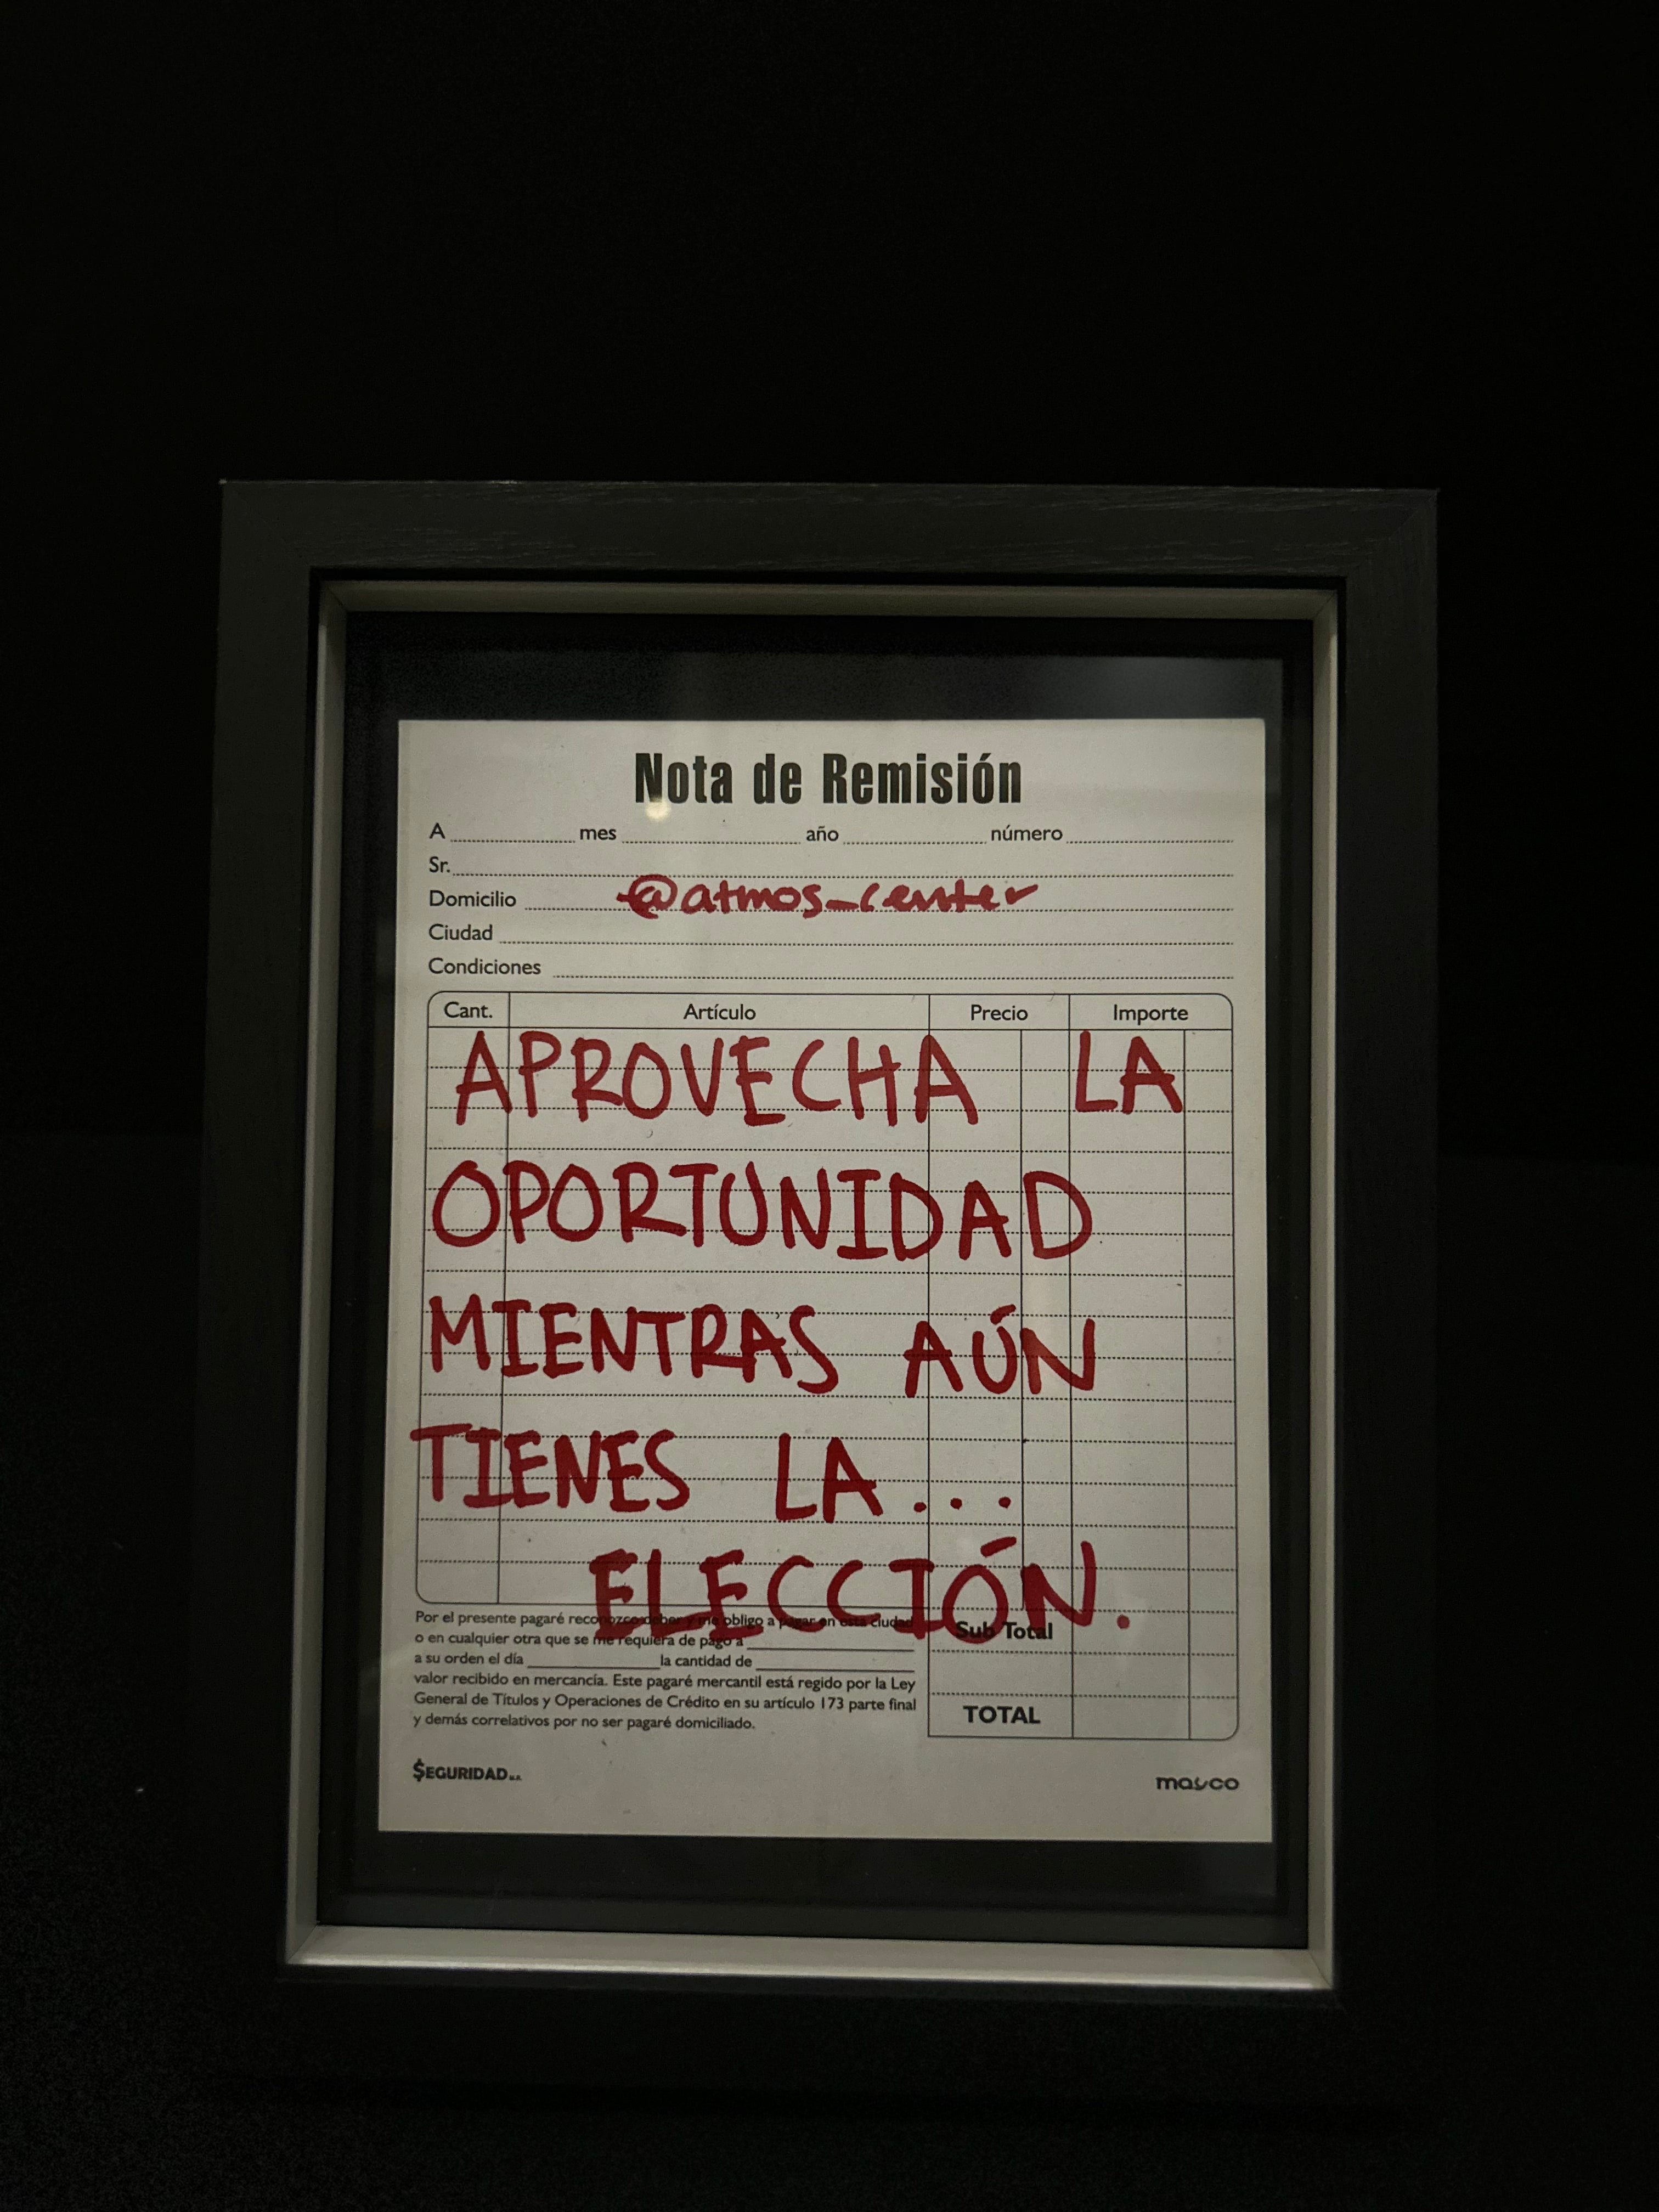 Nota de Remisión
A mes año número
Sr.
Domicilio @atmos_center
Ciudad
Condiciones
Cant. Artículo Precio Importe
APROVECHA LA
OPORTUNIDAD
MIENTRAS AÚN
TIENES LA...
ELECCIÓN.
Por el presente pagaré reconozco deber y me obligo a pagar en esta ciudad
o en cualquier otra que se me requiera de pago a
a su orden el día la cantidad de
valor recibido en mercancía. Este pagaré mercantil está regido por la Ley
General de Titulos y Operaciones de Crédito en su artículo 173 parte final
y demás correlativos por no ser pagaré domiciliado.
Sub Total
TOTAL
$EGURIDAD
mayco